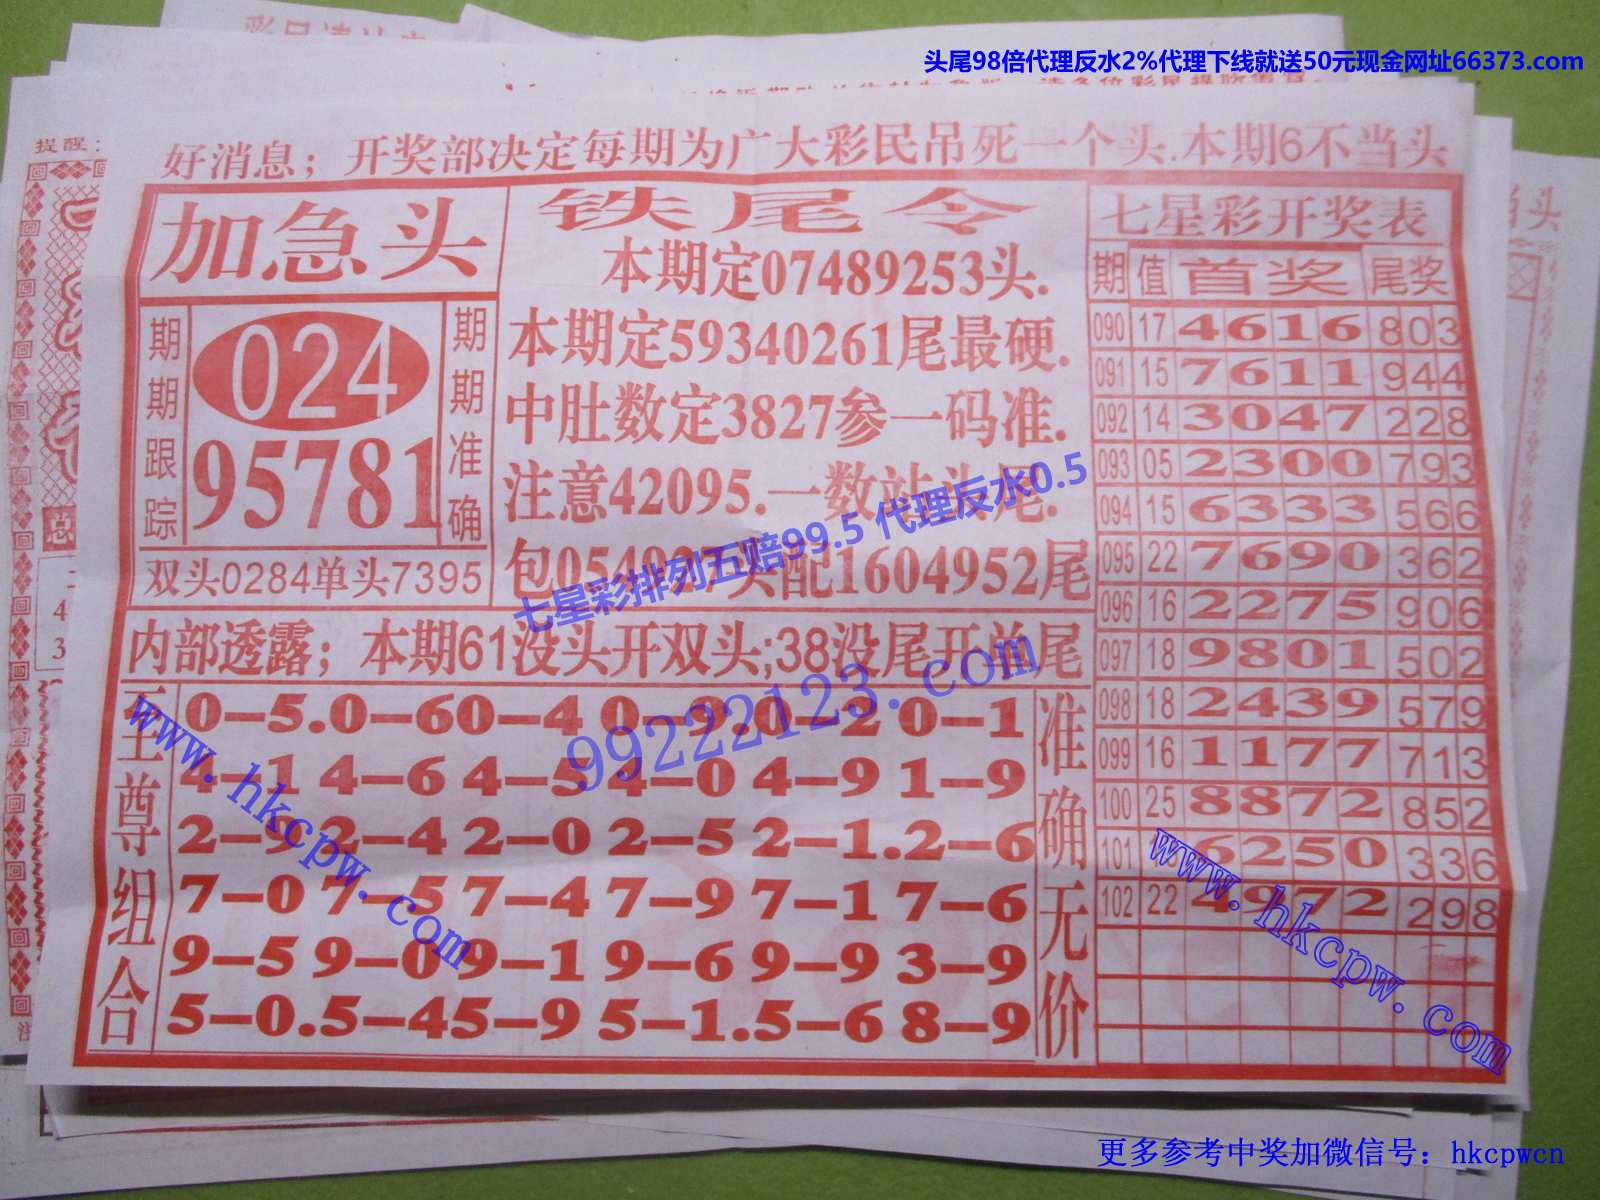 头尾98倍代理反水2%代理下线就送50元现金网址66373.com
提醒:
好消息；开奖部决定每期为广大彩民吊死一个头.本期6不当头
加急头
期期跟踪
024
95781
期期准确
双头0284单头7395
铁尾令
本期定07489253头.
本期定59340261尾最硬.
中肚数定3827参一码准.
注意42095.一数站头尾.
配1604952尾
七星彩排列五赔99.5 代理反水0.5
99222123.com
内部透露；本期61没头开双头;38没尾开单尾
至尊组合
0–5.0–6 0–4 0–9.0–2 0–1
4–1 4–6 4–5 4–0 4–9 1–9
2–9 2–4 2–0 2–5 2–1.2–6
7–0 7–5 7–4 7–9 7–1 7–6
9–5 9–0 9–1 9–6 9–9 3–9
5–0.5–4 5–9 5–1.5–6 8–9
准确无价
七星彩开奖表
期 值 首奖 尾奖
090 17 4616 803
091 15 7611 944
092 14 3047 228
093 05 2300 793
094 15 6333 566
095 22 7690 362
096 16 2275 906
097 18 9801 502
098 18 2439 579
099 16 1177 713
100 25 8872 852
101 6250 336
102 22 4972 298
www.hkcpw.com
www.hkcpw.com
更多参考中奖加微信号：hkcpwcn